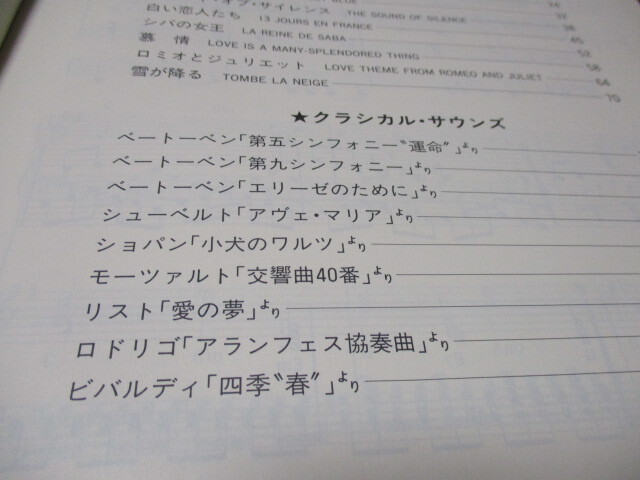 BLUE 24
・オブ・サイレンス THE SOUND OF SILENCE 32
白い恋人たち 13 JOURS EN FRANCE 38
シバの女王 LA REINE DE SABA 45
慕情 LOVE IS A MANY-SPLENDORED THING 52
ロミオとジュリエット LOVE THEME FROM ROMEO AND JULIET 58
雪が降る TOMBE LA NEIGE 64
70
★クラシカル・サウンズ
ベートーベン「第五シンフォニー〝運命〟」より
ベートーベン「第九シンフォニー」より
ベートーベン「エリーゼのために」より
シューベルト「アヴェ・マリア」より
ショパン「小犬のワルツ」より
モーツァルト「交響曲40番」より
リスト「愛の夢」より
ロドリゴ「アランフェス協奏曲」より
ビバルディ「四季〝春〟」より